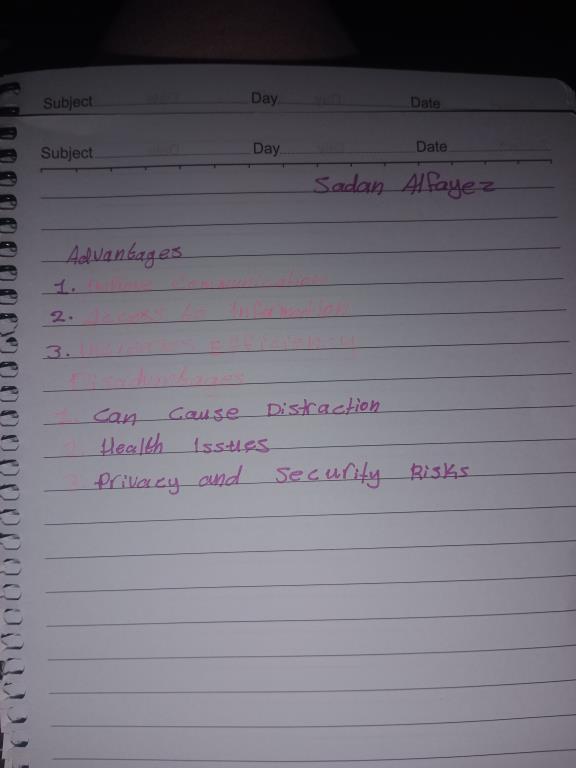 Subject Day Date
Subject Day Date
Sadan Alfayez
Advantages
1. Communication
2. Access to Information
3. Increases Efficiency
Disadvantages
1. Can Cause Distraction
2. Health Issues
3. Privacy and Security Risks